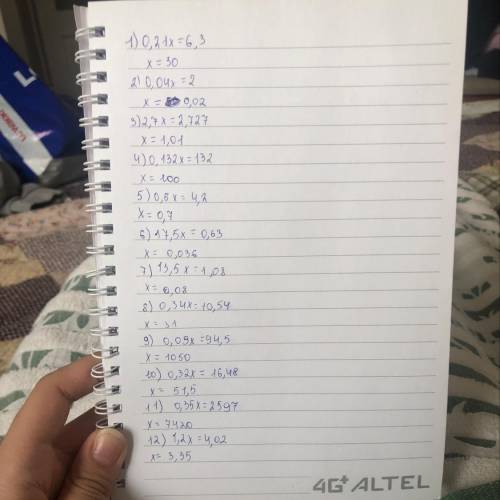 1) 0,21x = 6,3
x = 30
2) 0,04x = 2
x = 0,02
3) 2,7x = 2,727
x = 1,01
4) 0,132x = 132
x = 100
5) 0,6x = 4,2
x = 0,7
6) 17,5x = 0,63
x = 0,036
7) 13,5x = 1,08
x = 0,08
8) 0,34x = 10,54
x = 31
9) 0,09x = 94,5
x = 1050
10) 0,32x = 16,48
x = 51,5
11) 0,35x = 2597
x = 7420
12) 1,2x = 4,02
x = 3,35
4G+ ALTEL